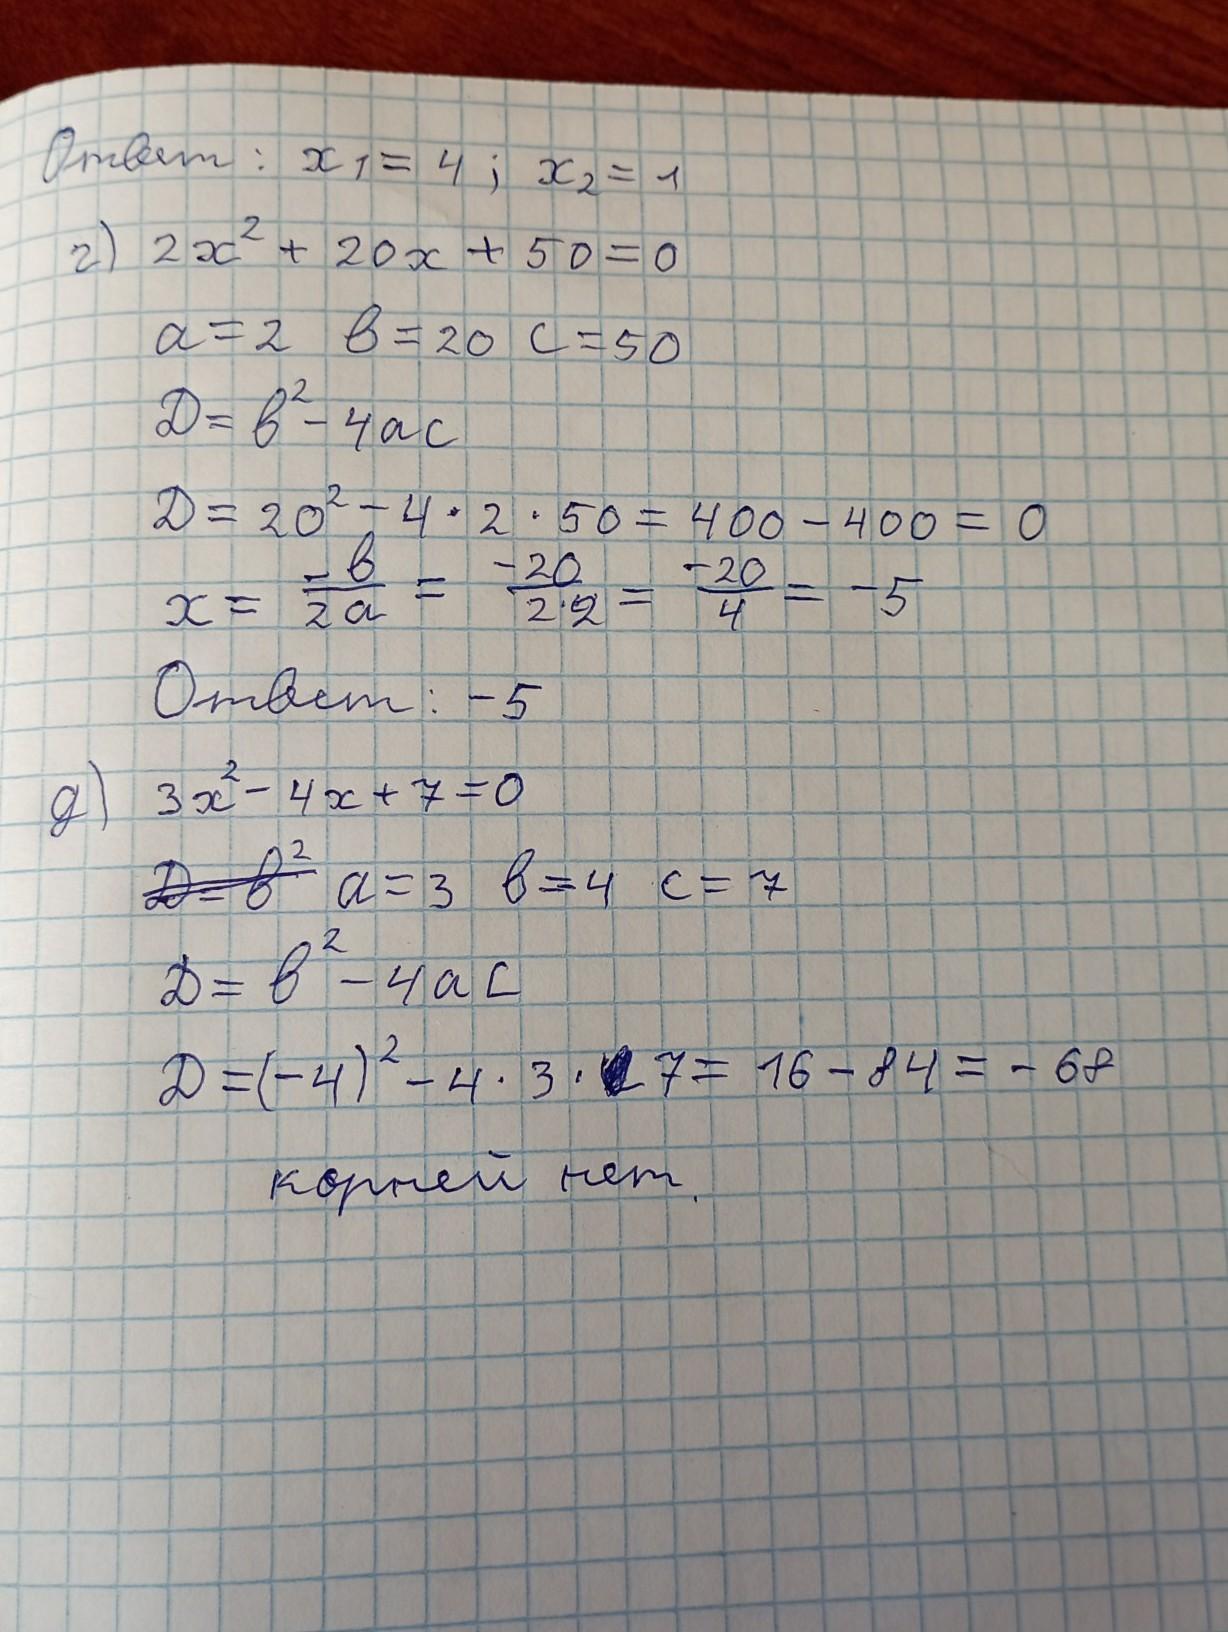 Ответ: x₁ = 4; x₂ = 1
г) 2x² + 20x + 50 = 0
a = 2 b = 20 c = 50
D = b² - 4ac
D = 20² - 4 · 2 · 50 = 400 - 400 = 0
x = -b/2a = -20/2·2 = -20/4 = -5
Ответ: -5
д) 3x² - 4x + 7 = 0
D = b² a = 3 b = 4 c = 7
D = b² - 4ac
D = (-4)² - 4 · 3 · 7 = 16 - 84 = - 68
корней нет.